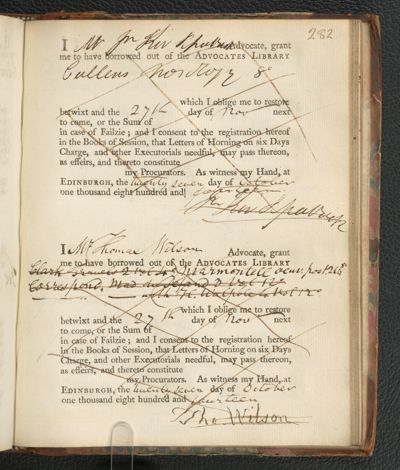 282
I Mr Jn Advocate, grant
me to have borrowed out of the ADVOCATES LIBRARY
Cullens Nosology 8o
which I oblige me to restore
betwixt and the 27th day of Nov next
to come, or the Sum of
in case of Failzie; and I consent to the registration hereof
in the Books of Session, that Letters of Horning on six Days
Charge, and other Executorials needful, may pass thereon,
as effeirs, and thereto constitute
my Procurators. As witness my Hand, at
EDINBURGH, the twenty seven day of October
one thousand eight hundred and
I Mr Thomas Wilson Advocate, grant
me to have borrowed out of the ADVOCATES LIBRARY
Marmontell
Correspond, Mad
which I oblige me to restore
betwixt and the 27th day of Nov next
to come, or the Sum of
in case of Failzie; and I consent to the registration hereof
in the Books of Session, that Letters of Horning on six Days
Charge, and other Executorials needful, may pass thereon,
as effeirs, and thereto constitute
my Procurators. As witness my Hand, at
EDINBURGH, the twenty seven day of October
one thousand eight hundred and fourteen
Tho Wilson